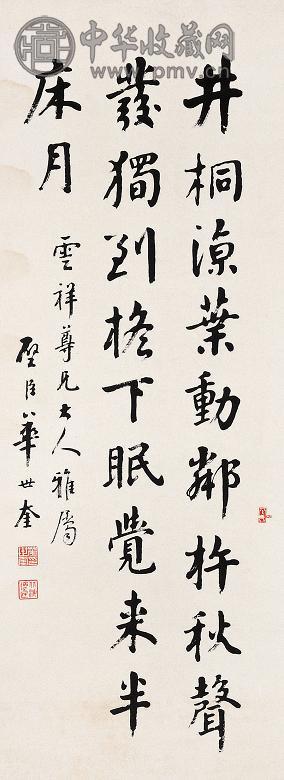 井桐涼葉動鄰杵秋聲
發獨到檐下眠覺來半
床月
雲祥尊兄大人雅屬
璧臣華世奎
中华收藏网
www.pmv.cn